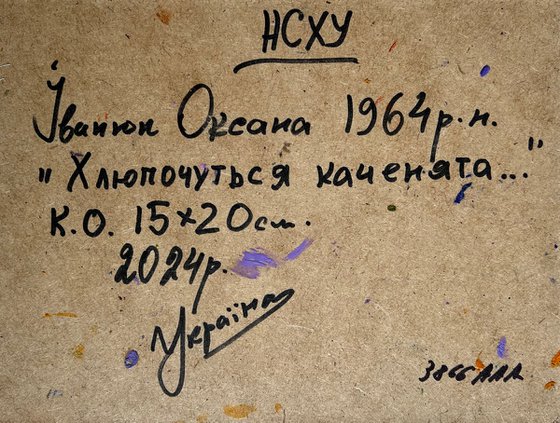 НСХУ
Іванюк Оксана 1964 р.н.
"Хлюпочуться каченята..."
К.О. 15×20 см.
2024р.
Україна